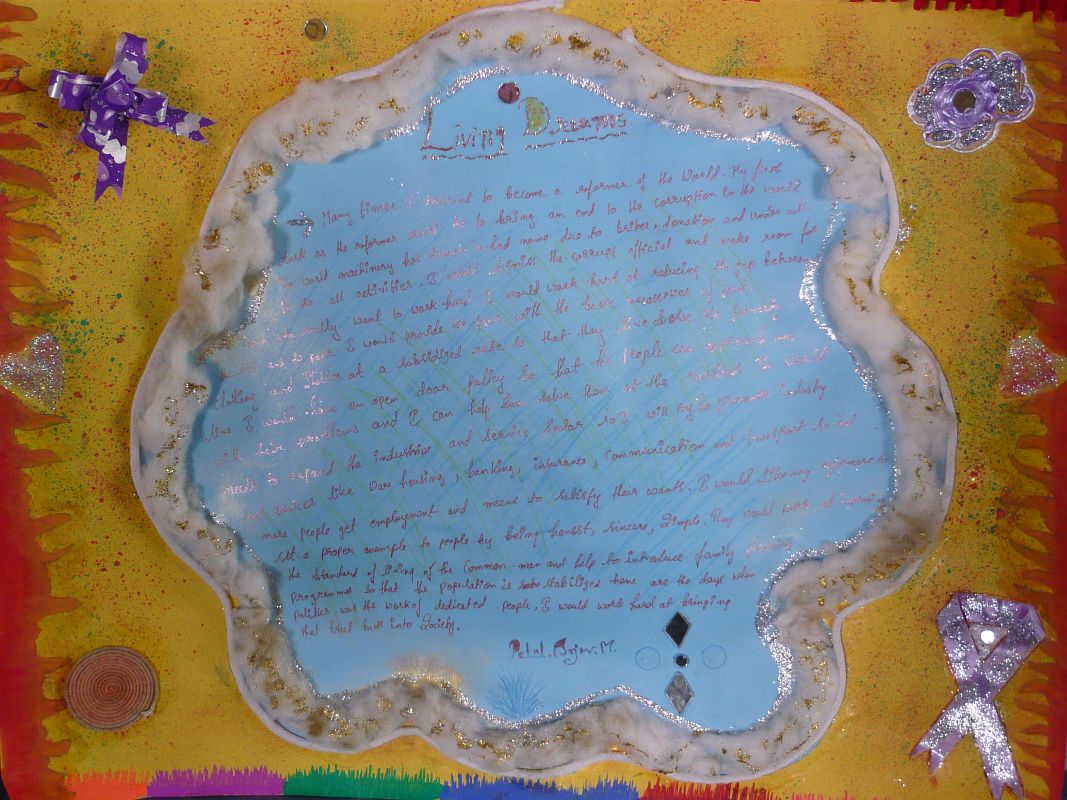 Living Dreams
Many times I dreamt to become a reformer of the World. My first
work as the reformer would be to bring an end to the corruption in the world
world machinery has a bad name due to bribes, donation and under
to all activities. I would dismiss the corrupt official and make room for
want to work hard. I would work hard at reducing the gap between
and poor. I would provide the poor with the basic necessities of food,
clothing and at a subsidized rate so that they live above the poverty
line. I would have an open door policy so that the people can approach me
with their problems and I can help them solve them at the earliest. The world
needs to expand the industries and service Sector so I will try to promote industry
and services like ware housing, banking, insurance, communication and transport So that
more people get employment and means to satisfy their wants. I would like my
set a proper example to people by being honest, sincere, simple. They would work at
the standard of living of the common man and help to introduce family planning
programmes so that the population is stabilized. are the days when
politics was the work of dedicated people, I would work hard at bringing
that back into Society.
M.